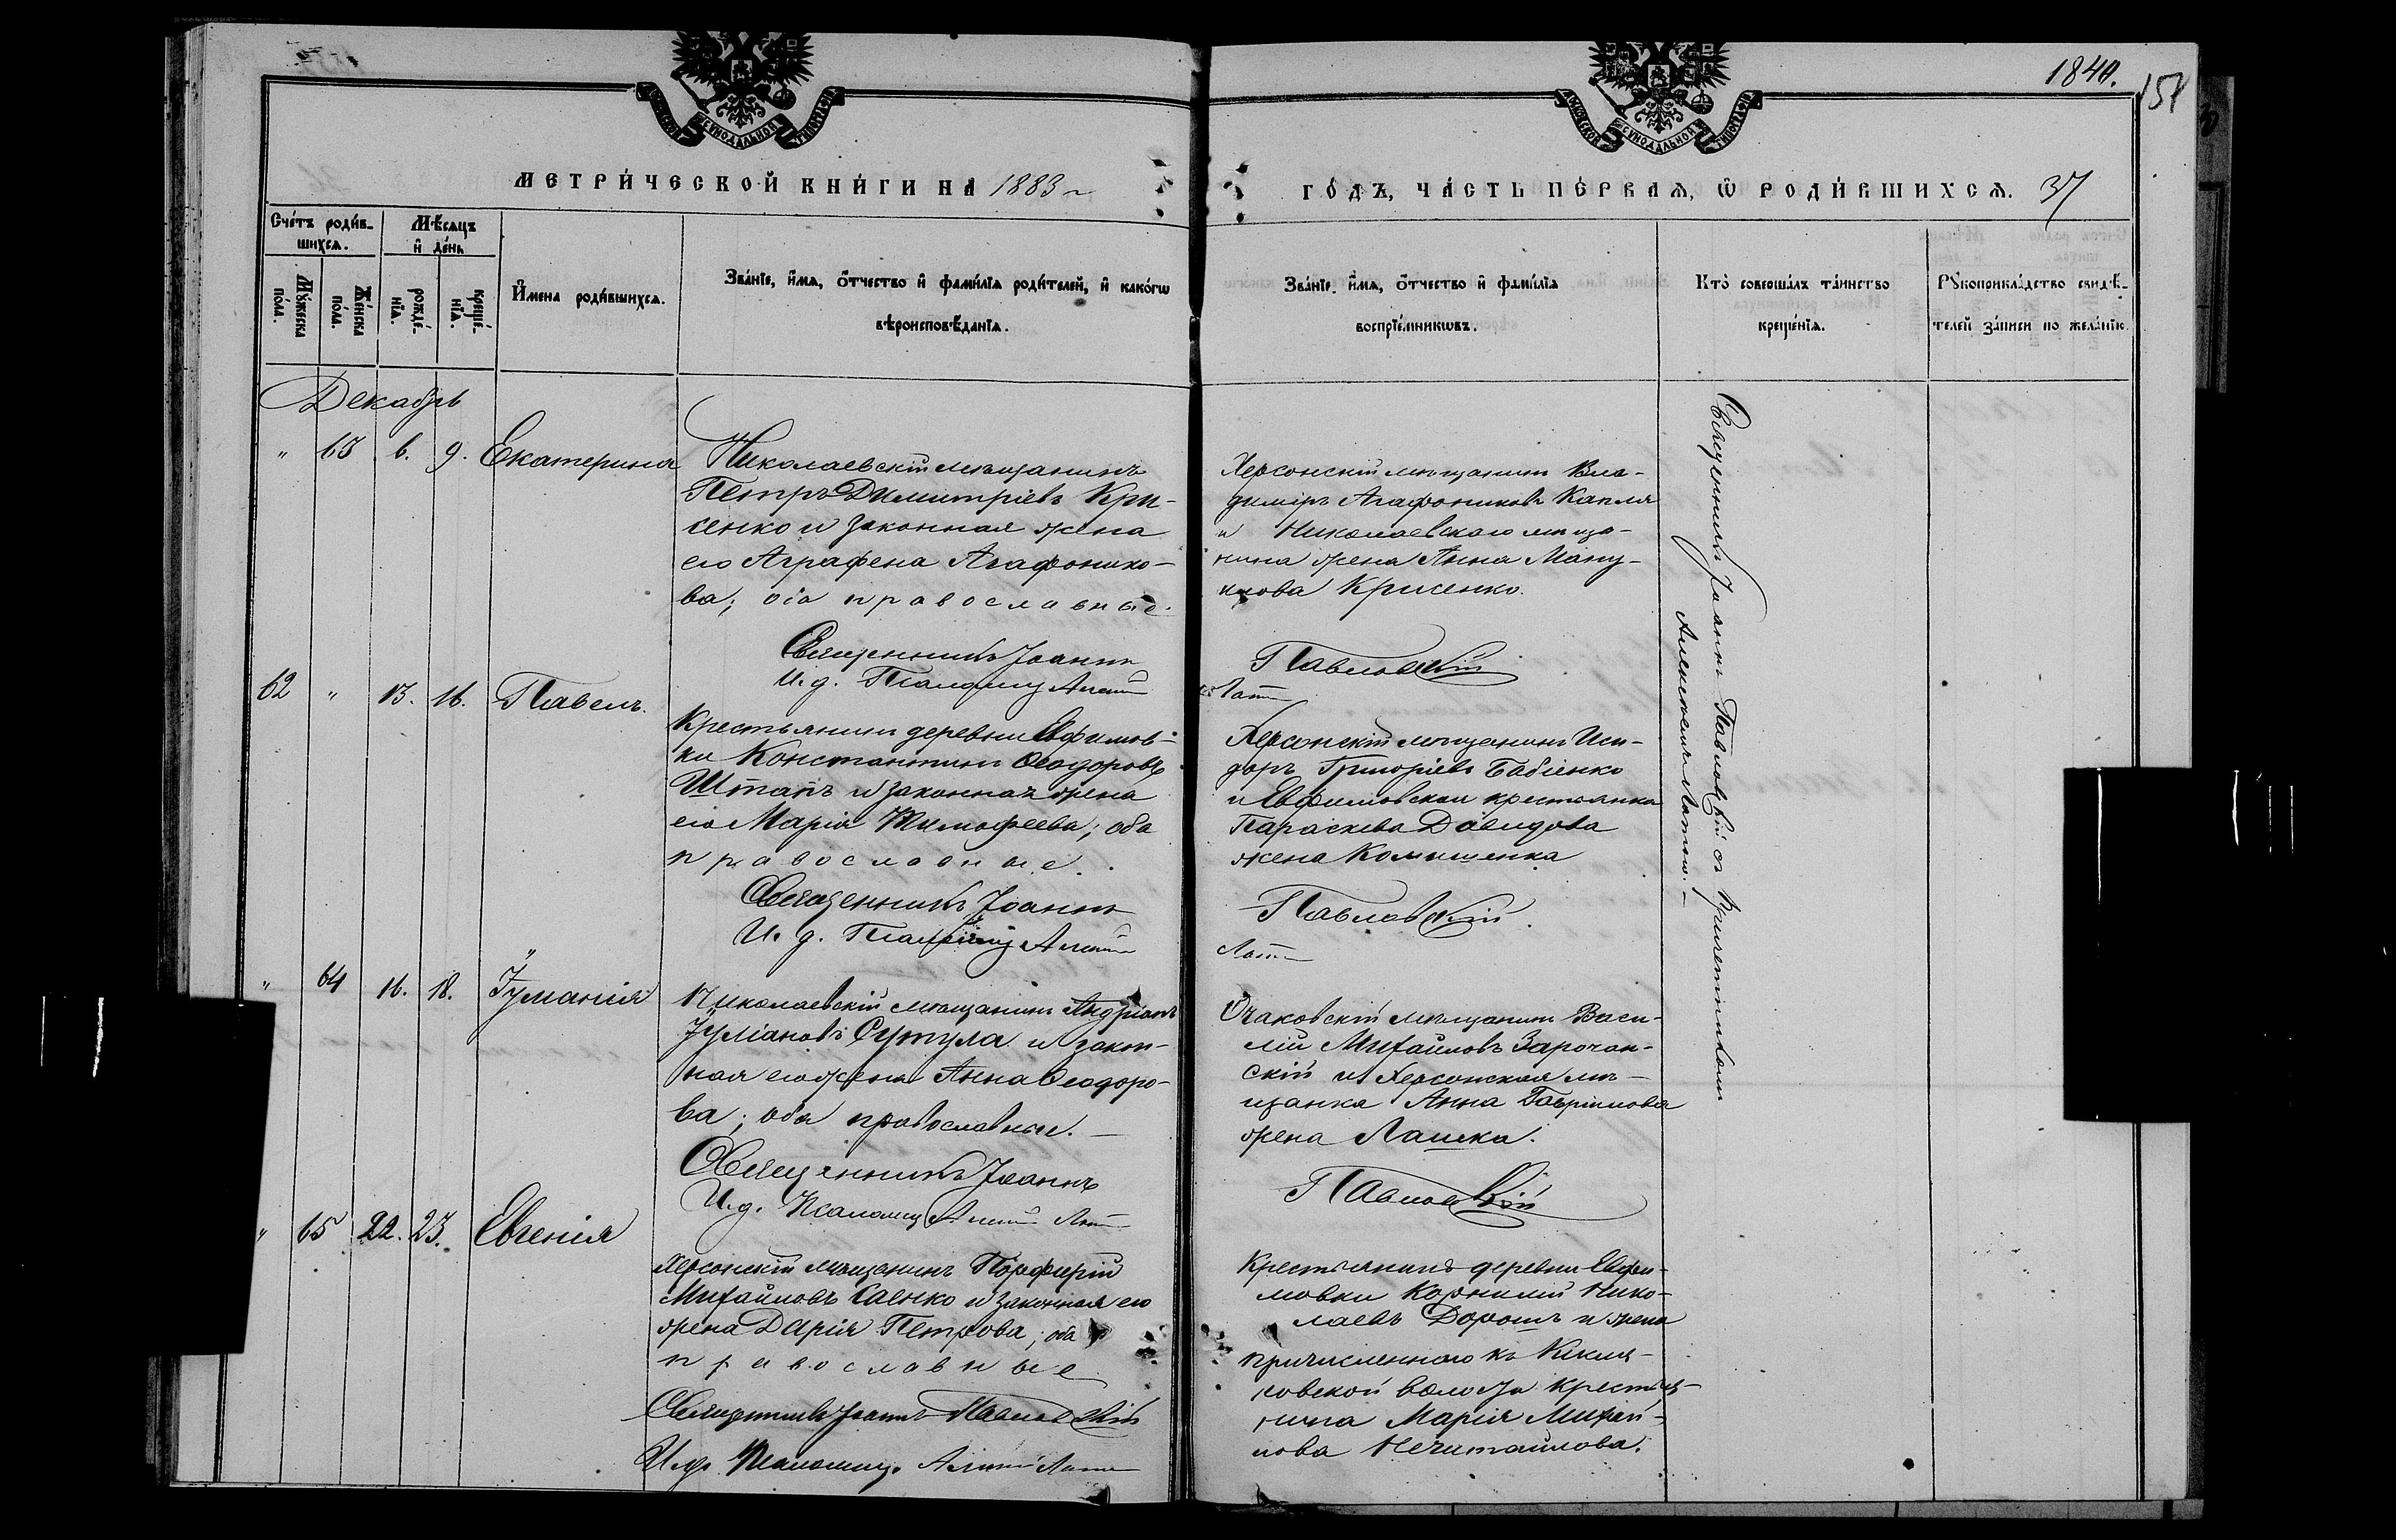 1840.
157
МОСКОВСКОЙ СѴНОДАЛЬНОЙ ТИПОГРАФІИ
МОСКОВСКОЙ СѴНОДАЛЬНОЙ ТИПОГРАФІИ
МЕТРИ́ЧЕСКОЙ КНИ́ГИ НА 1883
ГО́ДЪ, ЧА́СТЬ ПЕ́РВАЯ, Ѡ РОДИ́ВШИХСЯ. 37
Сче́тъ роди́в-
шихся.
Мѣ́сяцъ
и҆ де́нь
Мꙋ́жеска
по́ла.
Же́нска
по́ла.
рожде́-
нїя.
креще́-
нїя.
И҆мена роди́вшихся.
Зва́нїе, и҆́мя, ѻ҆́тчество и҆ фами́лїа роди́телей, и҆ како́гѡ
вѣроисповѣ́данїя.
Зва́нїе, и҆́мя, ѻ҆́тчество и҆ фами́лїа
воспрїе́мникѡвъ.
Кто̀ соверша́лъ та́инство
креще́нїя.
Рꙋкоприкла́дство свидѣ́-
телей за́писи по жела́нїю.
Декабрь
" 63 6. 9. Екатерина
Николаевскій мѣщанинъ
Петръ Димитріевъ Кри-
сенко и законная жена
его Аграфена Агафонико-
ва; оба православные.
Священникъ Іоаннъ
И. д. Псаломщ
Херсонскій мѣщанинъ Вла-
диміръ Агафониковъ Капля
и Николаевскаго мѣща-
нина жена Анна Ману-
илова Крисенко.
Павловскій
62 " 13. 16. Павелъ.
Крестьянинъ деревни Евфимов-
ки Константинъ Ѳеодоровъ
Штапъ и законная жена
его Марія Тимофеева; оба
православные.
Священникъ Іоаннъ
И. д. Псаломщ
Херсонскій мѣщанинъ Иси-
доръ Григоріевъ Бабіенко
и Евфимовская крестьянка
Параскева Давидова
жена
Павловскій.
" 64 16. 18. Іуліанія
Николаевскій мѣщанинъ Андріанъ
Іуліановъ Сутула и закон-
ная его жена Анна Ѳеодоро-
ва; оба православные.
Священникъ Іоаннъ
И. д. Псаломщ
Очаковскій мѣщанинъ Васи-
лій Михайловъ Зарочан-
скій и Херсонская мѣ-
щанка Анна Гавріилова
жена
Павловскій
" 65 22. 23. Евгенія
Херсонскій мѣщанинъ Порфирій
Михайловъ Савенко и законная его
жена Дарія Петрова; оба
православные
Священникъ Іоаннъ Павловскій
И. д. Псаломщ.
Крестьянинъ деревни Евфи-
мовки Корнилій Нико-
лаевъ Дорошъ и жена
причисленнаго къ
волости крестья-
нина Марія Михай-
лова Нечитайлова.
Священникъ Іоаннъ Павловскій съ Причетникомъ